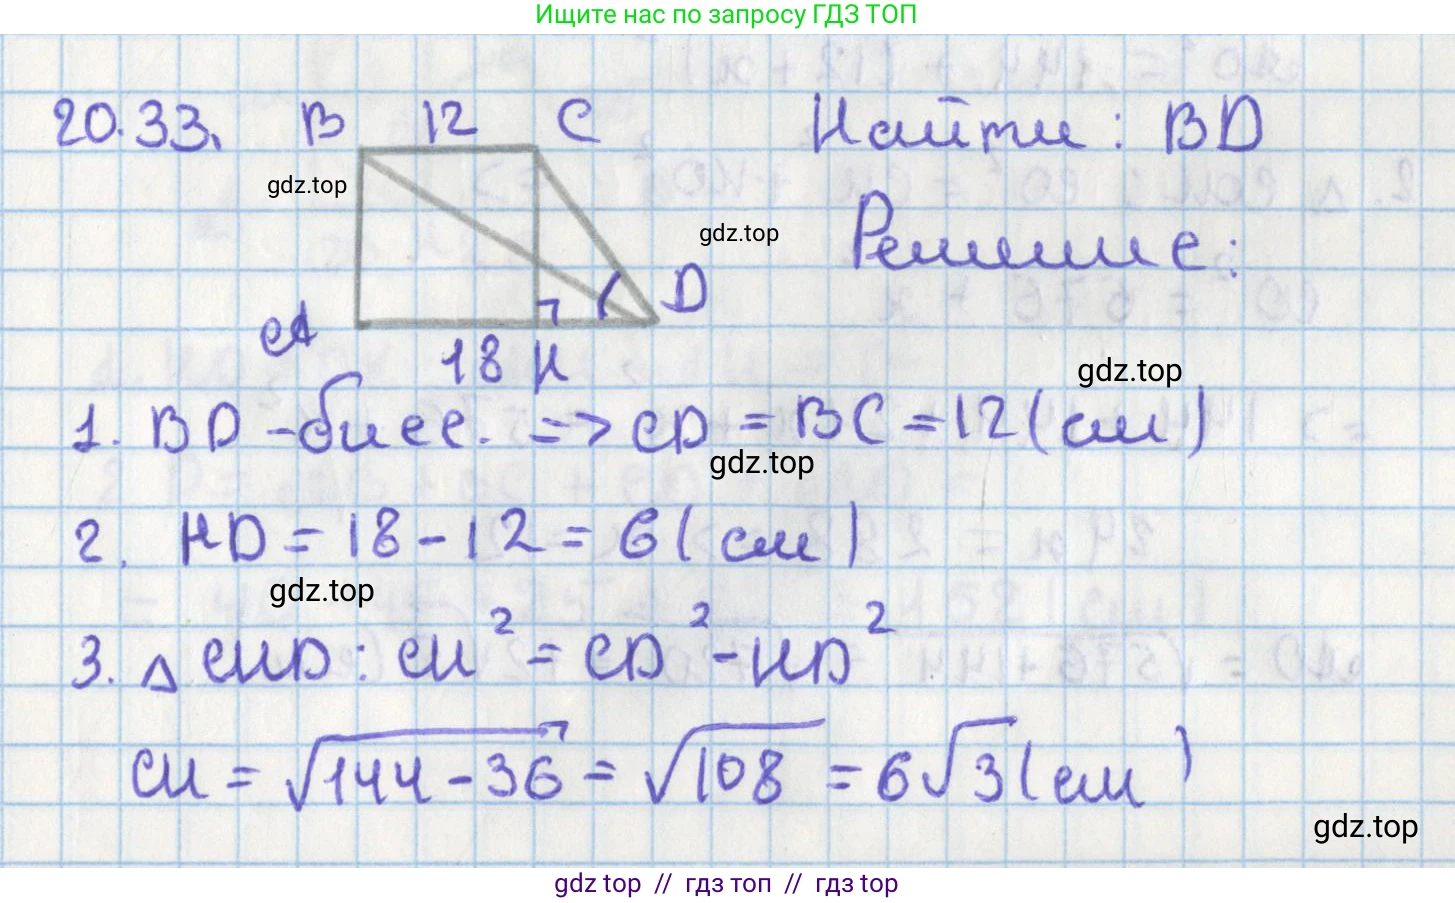 Ищите нас по запросу ГДЗ ТОП
20.33. B 12 C Найти: BD
gdz.top
gdz.top
Решение:
D
A
18 H
gdz.top
1. BD - бисс. => CD = BC = 12 (см)
gdz.top
2. HD = 18 - 12 = 6 (см)
gdz.top
3. △ CHD: CH² = CD² - HD²
CH = √144 - 36 = √108 = 6√3 (см)
gdz.top
gdz top // гдз топ // гдз top